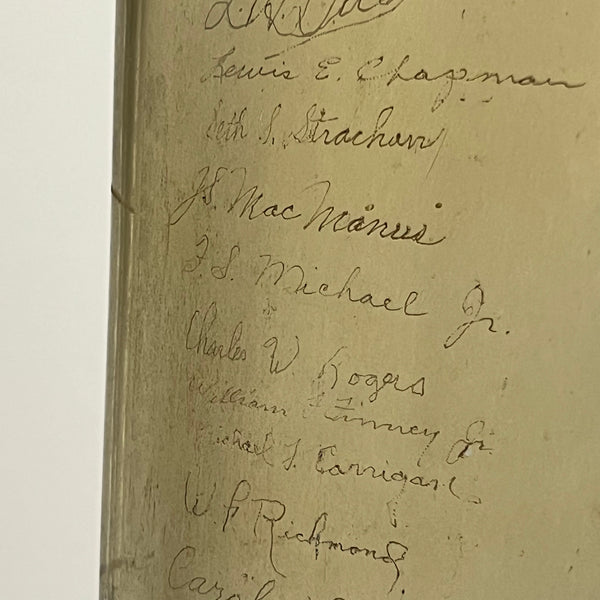 Lewis E. Chapman
Seth S. Strachan
J.S. MacManus
F. S. Michael Jr.
Charles W. Rogers
William Finney Jr.
Michael J. Carrigan
W. P. Richmond